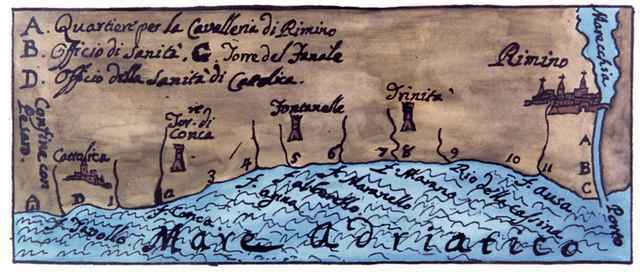 A. Quartieri per la Cavalleria di Rimino
B. Officio di Sanità. C. Torre del Fanale
D. Officio della Sanità di Catolica.
Marecchia
Rimino
Confine con
Pesaro
Cattolica
Tor.re di
Conca
Fontanelle
Trinità
D 1 2 3 4 5 6 7 8 9 10 11
A
B
C
Porto
F. Tavollo
F. Conca
F. Marano
Rio della Cassina
F. Ausa
Mare Adriatico